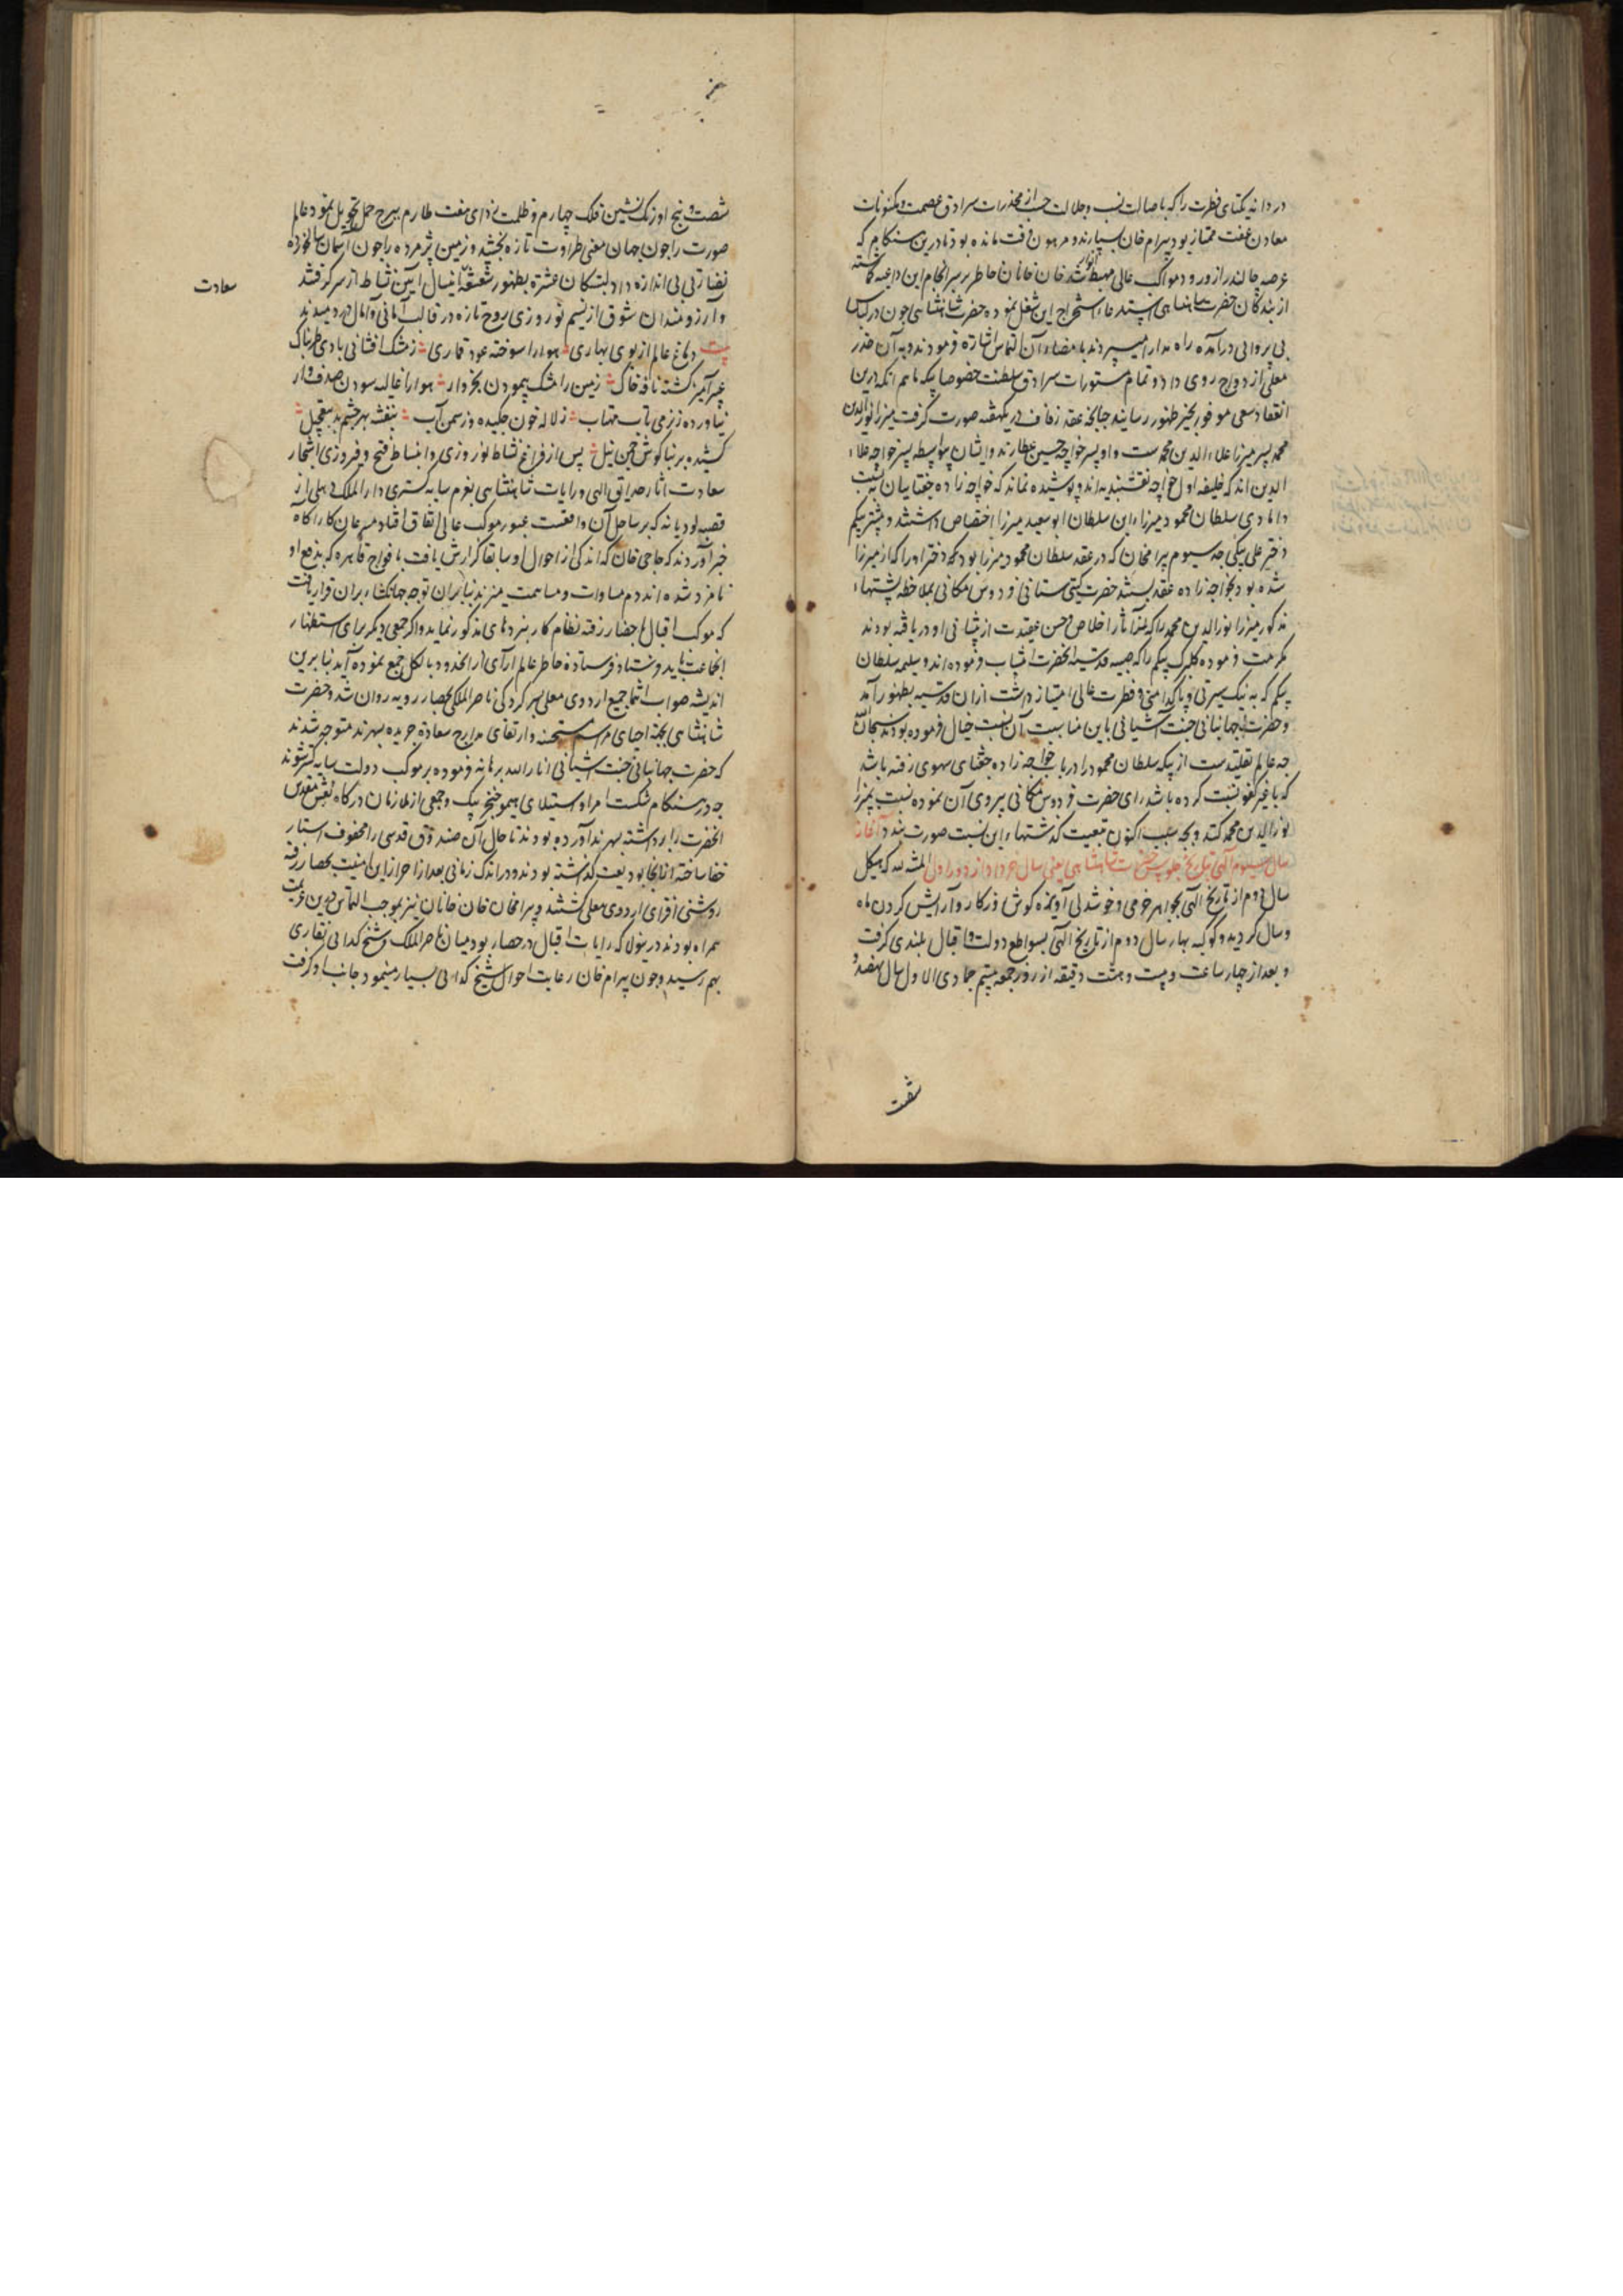 دردانه یکتای فطرت را که باصالت نسب و جلالت حسب از مخدرات سرادق عصمت و مکنونات
معادن عفت ممتاز بود به بیرام خان سپارند و مرهون وقت مانده بود تا درین هنگام که
عرصه جالندر از ورود مواکب عالی مهبط انوار شد خان خانان خاطر بر سرانجام این داعیه گماشته
از بندگان حضرت شاهنشاهی استدعاء استخراج این شغل نموده حضرت شاهنشاهی چون در لباس
بی پروایی درآمده راه مدارا میسپردند بامضاء آن التماس اشارة فرمودند و به آن خدر
معلی ازدواج روی داد و تمام مستورات سرادق سلطنت خصوصا بیکه ماهم انکه درین
انعقاد سعی موفور بحیز ظهور رسانیدند چنانچه عقد زفاف در یکهفته صورت گرفت میرزا نورالدین
محمد پسر میرزا علاءالدین محمدست و او پسر خواجه حسین عطارند و ایشان بواسطه پسر خواجه علاء
الدین اند که خلیفه اول خواجه نقشبندیه اند و پوشیده نماند که خواجه زاده چغانیان به نسبت
دامادی سلطان محمود میرزا ابن سلطان ابوسعید میرزا اختصاص داشتند و پشه بیکم
دختر علی بیکی جد سیوم بیرامخان که در عقد سلطان محمود میرزا بود که دختر او را که از میرزا
شده بود بخواجه زاده عقد بستند حضرت گیتی ستانی فردوس مکانی بملاحظه پشتهاء
مذکور میرزا نورالدین محمد را که آثار اخلاص و حسن عقیدت از پیشانی او دریافته بودند
مکرمت فرموده گلبرک بیکم را که صبیه قدسیه آنحضرت انتساب فرموده اند و سلیمه سلطان
بیکم که به نیک سیرتی و پاکدامنی و فطرت عالی امتیاز داشت ازان قدسیه بظهور آمد
و حضرت جهانبانی جنت آشیانی باین مناسبت آن نسبت خیال فرموده بودند سبحان الله
چه عالم تقلیدست از بیکه سلطان محمود را در باب خواجه زاده چغانی سهوی رفته باشد
که با غیر کفو نسبت کرده باشد رای حضرت فردوس مکانی پیروی آن نموده نسبت بمیرزا
نورالدین محمد کند و بچه سبب اکنون تبعیت گذشتهاء این نسبت صورت بندد آغاز
سال سیوم الهی بتاریخ جلوس حضرت شاهنشاهی یعنی سال خرداد از دور اول المنة لله که هیکل
سال دوم از تاریخ الهی بجواهر خرمی و خوشدلی آویزه گوش روزگار و آرایش گردن ماه
و سال گردید و کوکبه بهار سال دوم از تاریخ الهی بسواطع دولت و اقبال بلندی گرفت
و بعد از چهار ساعت و بیست و هشت دقیقه از روز جمعه بیستم جمادی الاول سال نهصد و
شصت
شصت و پنج اورنک نشین فلک چهارم و ظلمت زدای هفت طارم به برج حمل تحویل نمود عالم
صورت را چون جهان معنی طراوت تازه بخشید و زمین پژمرده را چون آسمان سالخورده
نضارتی بی اندازه داد دلبستگان عشرة بطهور شعشعه اینسال آیین نشاط از سر گرفتند
و آرزومندان شوق از نسیم نوروزی روح تازه در قالب امانی و آمال دردمیدند
بیت دماغ عالم از بوی بهاری هوا را سوخته عود قماری زمشک افشانی بادی طربناک
عبیرآمیز گشته نافه خاک زمین را مشک پیمودن بخروار هوا را غالیه سودن صدف وار
نیاورده زنرمی تاب مهتاب زلاله خون چکیده وز سمن آب بنفشه بهر چشم بد
کشیده بر بناگوش چمن نیل پس از فراغ نشاط نوروزی و انبساط فتح و فیروزی اشجار
سعادت اثمار حدایق الهی و رایات شاهنشاهی بعزم سایه گستری دارالملک دهلی از
قصبه لودیانه که بر ساحل آن واقعست عبور موکب عالی اتفاق افتاد مسرعان کارآگاه
خبر آوردند که حاجی خان که اندکی از احوال او سابقا گزارش یافت با فواج قاهره که بدفع او
نامزد شده اند دم مساوات و مساهمت میزند بنابران توجه جهانکشاء بران قرار یافت
که موکب اقبال بحصار رفته نظام کار نبردهای مذکور نماید و اگر جمعی دیگر برای استظهار
آنجماعت باید فرستاد فرستاده خاطر عالم آرای از انحدود بالکل جمع نموده آید بنابرین
اندیشه صواب انتما جمیع اردوی معلی بسرکردگی ناصرالملک بحصار رویه روان شد و حضرت
شاهنشاهی بجهة احیای مراسم مستحسنه و ارتقای مدارج سعادة جریده بسهرند متوجه شدند
که حضرت جهانبانی جنت آشیانی انارالله برهانه فرموده بر موکب دولت سایه گستر شوند
چه در هنگام شکست امرا و استیلای هیمو خنجر بیک و جمعی از ملازمان درگاه نعش مقدس
آنحضرت را برداشته بسهرند آورده بودند تا حال آن صندوق قدسی را محفوف استار
خفا ساخته آنجا بودیعت گذاشته بودند و در اندک زمانی بعد از احراز این امنیت بحصار رفته
روشنی افزای اردوی معلی گشتند و بیرامخان خان خانان نیز بموجب التماس درین عزیمت
همراه بودند درینولا که رایات اقبال در حصار بود میان ناصرالملک و شیخ گدایی نقاری
بهم رسید و چون بیرام خان رعایت احوال شیخ گدایی بسیار مینمود جانب او گرفت
سعادت